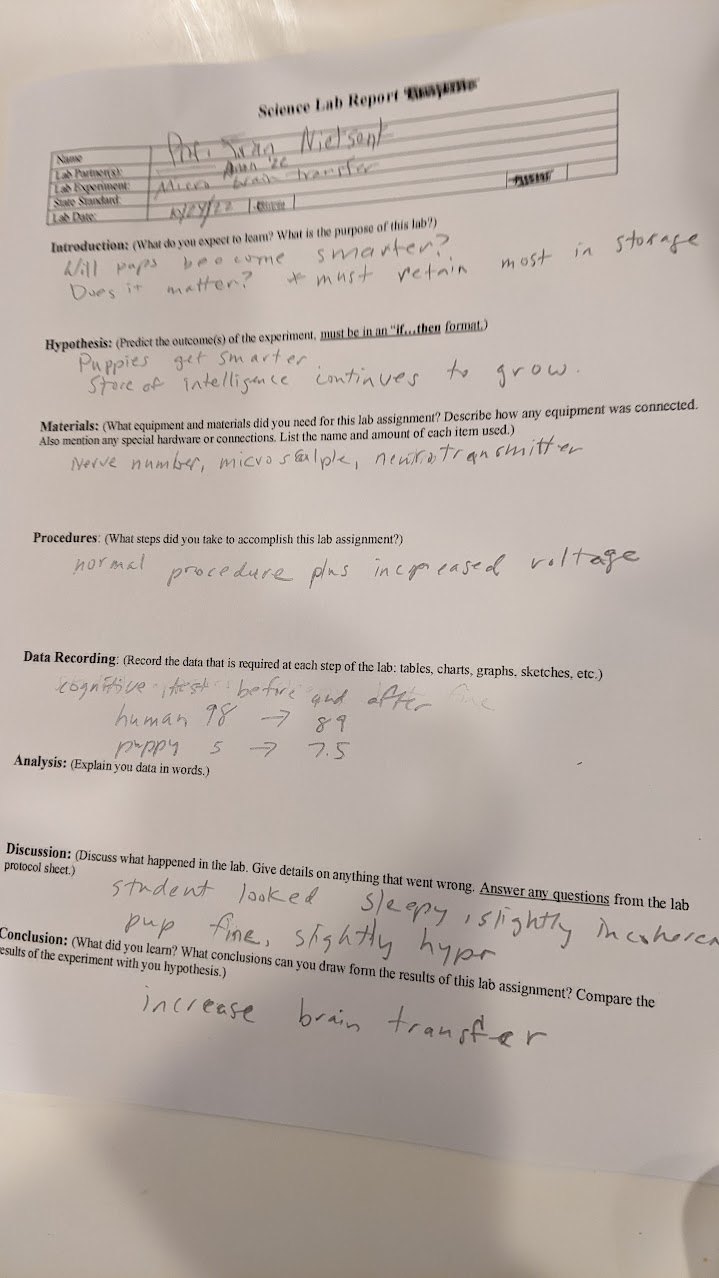 Science Lab Report
Name Prof. Nielsont
Lab Partner(s):
Lab Experiment: Micro brain transfer
State Standard:
Lab Date:
Introduction: (What do you expect to learn? What is the purpose of this lab?)
Will pups become smarter?
Does it matter? * must retain most in storage
Hypothesis: (Predict the outcome(s) of the experiment, must be in an "if...then format.)
Puppies get smarter
Store of intelligence continues to grow.
Materials: (What equipment and materials did you need for this lab assignment? Describe how any equipment was connected.
Also mention any special hardware or connections. List the name and amount of each item used.)
Nerve number, micro
Procedures: (What steps did you take to accomplish this lab assignment?)
normal procedure plus increased voltage
Data Recording: (Record the data that is required at each step of the lab: tables, charts, graphs, sketches, etc.)
cognitive test before and after
human 98 → 89
puppy 5 → 7.5
Analysis: (Explain you data in words.)
Discussion: (Discuss what happened in the lab. Give details on anything that went wrong. Answer any questions from the lab
protocol sheet.)
student looked sleepy, slightly
pup fine, slightly hypr
Conclusion: (What did you learn? What conclusions can you draw form the results of this lab assignment? Compare the
esults of the experiment with you hypothesis.)
increase brain transfer